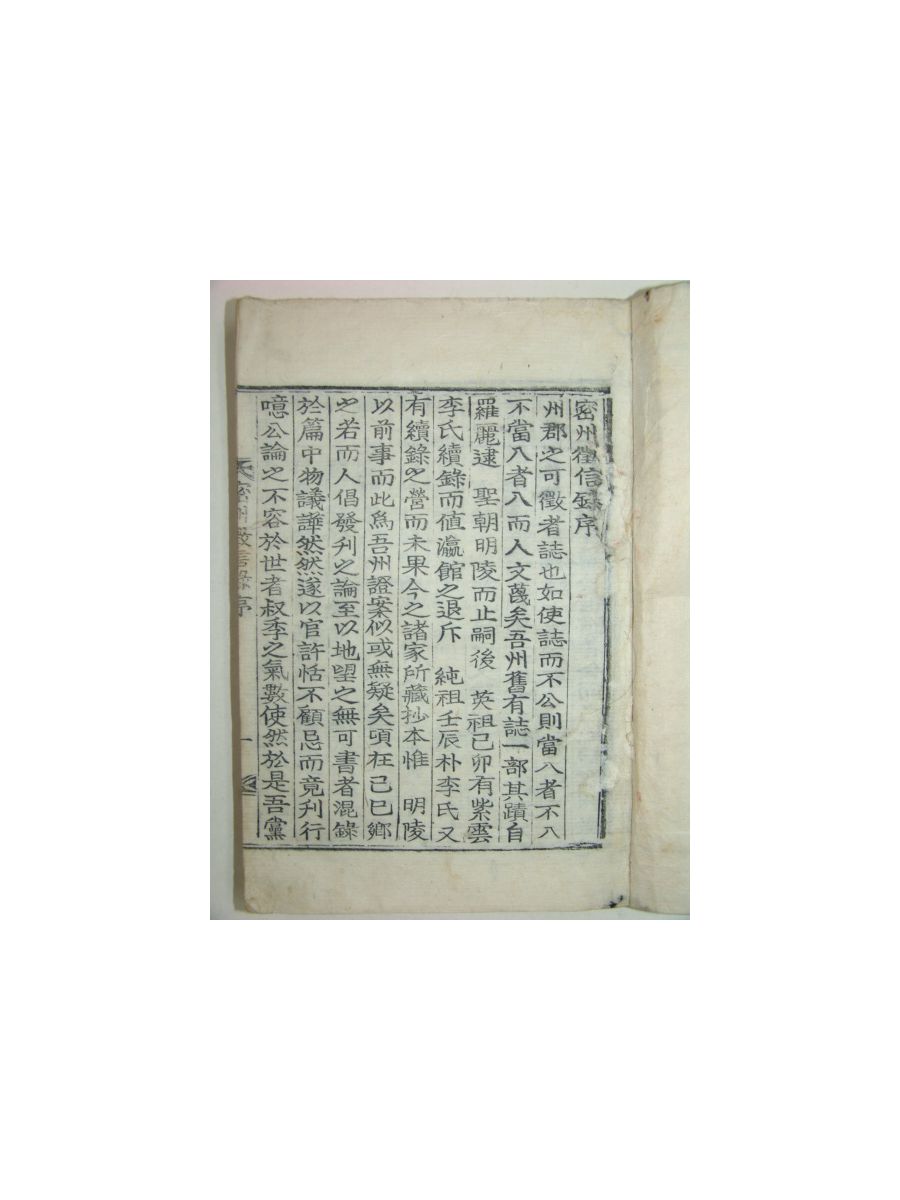 密州徵信錄序
州郡之可徵者誌也如使誌而不公則當入者不入
不當入者入而人文蔑矣吾州舊有誌一部其蹟自
羅麗逮　聖朝明陵而止嗣後　英祖己卯有紫雲
李氏續錄而値瀛館之退斥　純祖壬辰朴李氏又
有續錄之營而未果今之諸家所藏抄本惟　明陵
以前事而此爲吾州證案似或無疑矣頃在己巳鄕
之若而人倡發刋之論至以地望之無可書者混錄
於篇中物議譁然然遂以官許恬不顧忌而竟刋行
噫公論之不容於世者叔季之氣數使然於是吾黨
密州徵信錄　序　一